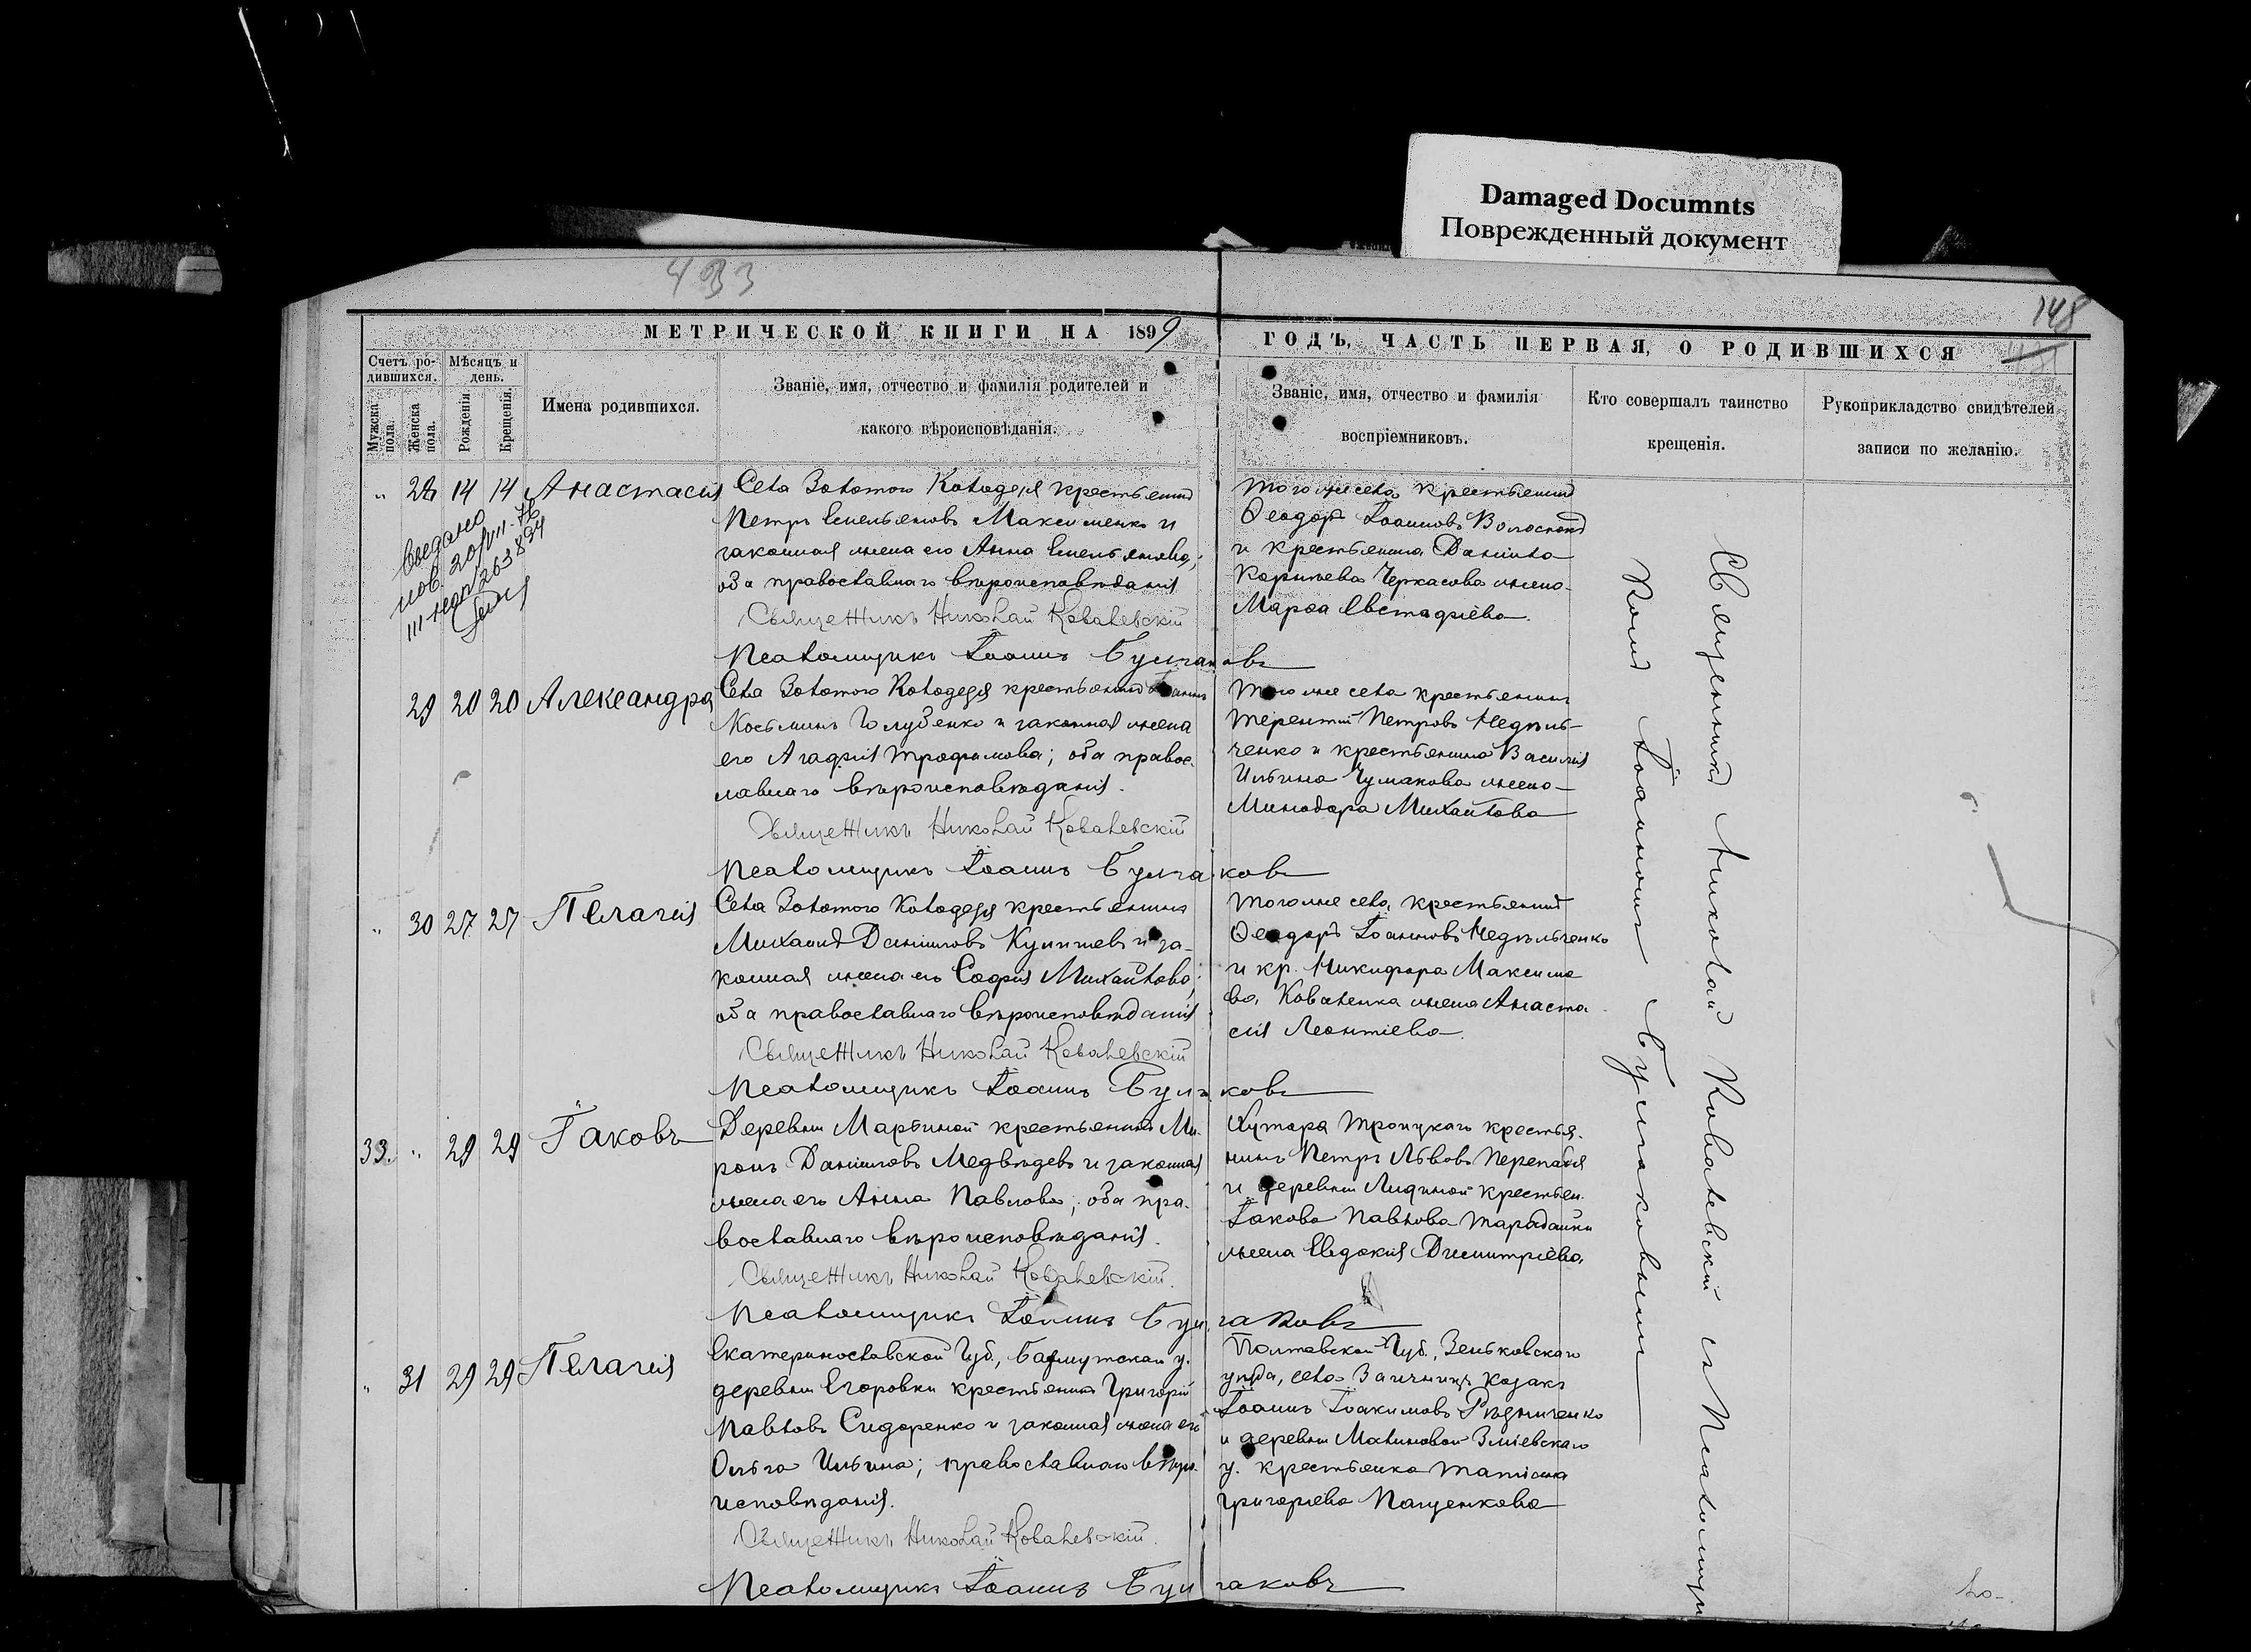 Damaged Documnts
Поврежденный документ
433
148
МЕТРИЧЕСКОЙ КНИГИ НА 1899
ГОДЪ, ЧАСТЬ ПЕРВАЯ, О РОДИВШИХСЯ
Счетъ ро-
дившихся.
Мѣсяцъ и
день.
Мужска
пола.
Женска
пола.
Рожденія.
Крещенія.
Имена родившихся.
Званіе, имя, отчество и фамилія родителей и
какого вѣроисповѣданія.
Званіе, имя, отчество и фамилія
воспріемниковъ.
Кто совершалъ таинство
крещенія.
Рукоприкладство свидѣтелей
записи по желанію.
" 28 14 14 Анастасія
Села Золотого Колодезя крестьянинъ
Петръ Емельяновъ Максименко и
законная жена его Анна Емельянова;
оба православнаго вѣроисповѣданія
Священникъ Николай Ковалевскій
Псаломщикъ Іоаннъ Булгаковъ
того же села крестьянинъ
Ѳеодоръ Іоанновъ
и крестьянина Даніила
Корнѣева Черкасова жена
Марѳа Евстафіева.
29 20 20 Александра
Села Золотого Колодезя крестьянинъ Іоаннъ
Косьминъ Голубенко и законная жена
его Агафія Трофимова; оба правос-
лавнаго вѣроисповѣданія.
Священникъ Николай Ковалевскій
Псаломщикъ Іоаннъ Булгаковъ
Того же села крестьянинъ
Терентій Петровъ Недѣль-
ченко и крестьянина Василія
Ильина Чумакова жена
Минодора Михайлова
" 30 27 27 Пелагія
Села Золотого Колодезя крестьянинъ
Михаилъ Данииловъ и за-
конная жена его Софія Михайлова;
оба православнаго вѣроисповѣданія
Священникъ Николай Ковалевскій
Псаломщикъ Іоаннъ Булгаковъ
Того же села, крестьянинъ
Ѳеодоръ Іоанновъ Недѣльченко
и кр. Никифора Максимо
ва, Коваленка жена Анаста
сія Леонтіева.
33. " 29 29 Іаковъ
Деревни Марьиной крестьянинъ Ми-
ронъ Даніиловъ Медвѣдевъ и законная
жена его Анна Павлова; оба пра-
вославнаго вѣроисповѣданія.
Священникъ Николай Ковалевскій.
Псаломщикъ Іоаннъ Булгаковъ
Хутора Троицкаго крестья-
нинъ Петръ Львовъ
и деревни Лидиной крестьян.
Іакова Павлова Тарадайки
жена Евдокія Димитріева.
" 31 29 29 Пелагія
Екатеринославской Губ., Бахмутскаго у.
деревни Егоровки крестьянинъ Григорій
Павловъ Сидоренко и законная жена его
Ольга Ильина; православнаго вѣро-
исповѣданія.
Священникъ Николай Ковалевскій.
Псаломщикъ Іоаннъ Булгаковъ
Полтавской Губ., Зеньковскаго
уѣзда, села козакъ
Іоаннъ Іоакимовъ Рѣзниченко
и деревни Малиновой Зміевскаго
у. крестьянка Татіана
Григорьева Пащенкова
Священникъ Николай Ковалевскій съ Псаломщи
комъ Іоанномъ Булгаковымъ